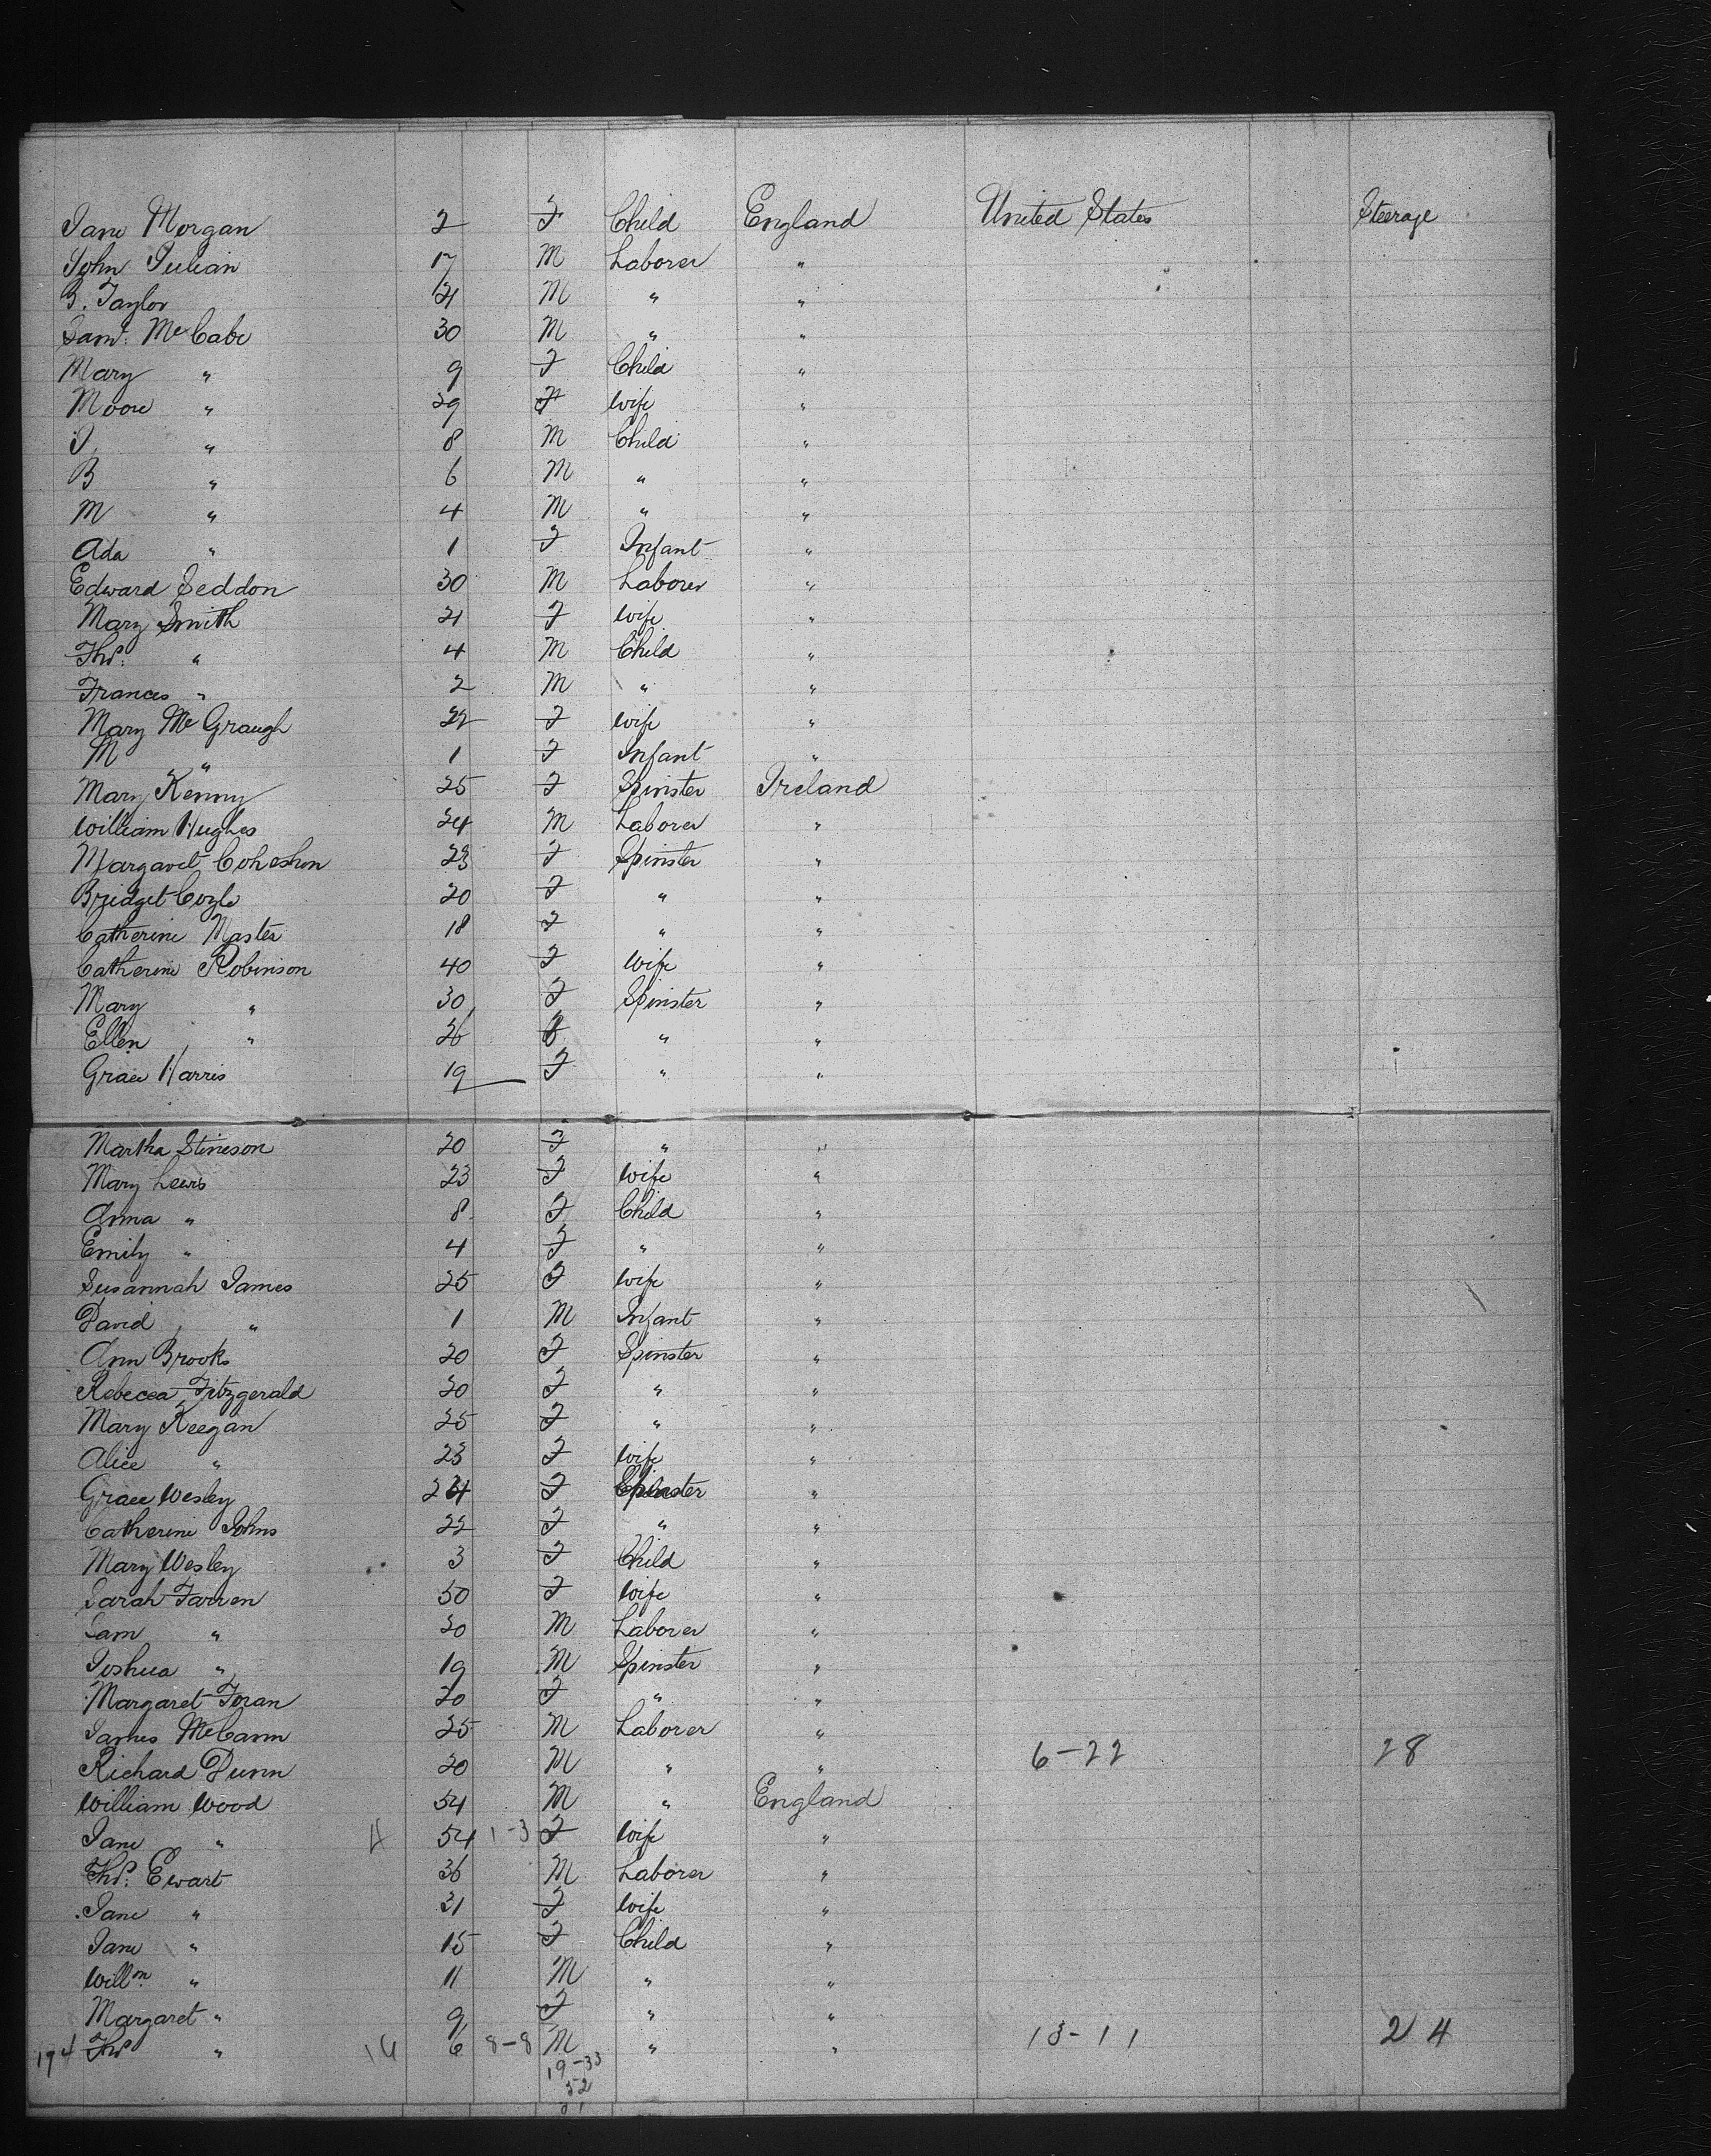 Jane Morgan 2 F Child England United States Steerage
John Julian 17 M Laborer "
B. Taylor 21 M " "
Saml. McCabe 30 M " "
Mary " 9 F Child "
Moore " 29 F wife "
J " 8 M Child "
B " 6 M " "
M " 4 M " "
Ada " 1 F Infant "
Edward Seddon 30 M Laborer "
Mary Smith 21 F wife "
Thos. " 4 M Child "
Frances " 2 M " "
Mary McGraugh 22 F wife "
M " 1 F Infant "
Mary Kenny 25 F Spinster Ireland
William Hughes 24 M Laborer "
Margaret Coheshon 23 F Spinster "
Bridget Coyle 20 F " "
Catherine Master 18 F " "
Catherine Robinson 40 F Wife "
Mary " 30 F Spinster "
Ellen " 26 F " "
Grace Harris 19 F " "
Martha Stineson 20 F " "
Mary Lewis 23 F wife "
Anna " 8 F Child "
Emily " 4 F " "
Susannah James 25 F wife "
David " 1 M Infant "
Ann Brooks 20 F Spinster "
Rebecca Fitzgerald 20 F " "
Mary Keegan 25 F " "
Alice " 23 F wife "
Grace Wesley 24 F Spinster "
Catherine Johns 22 F " "
Mary Wesley 3 F Child "
Sarah Farren 50 F wife "
Sam " 20 M Laborer "
Joshua " 19 M Spinster "
Margaret Foran 20 F " "
James McCann 25 M Laborer "
Richard Dunn 20 M " " 6-22 28
William Wood 54 M " England
Jane " 4 54 1-3 F wife "
Thos. Ewart 36 M Laborer "
Jane " 31 F wife "
Jane " 15 F Child "
Willm. " 11 M " "
Margaret " 9 F " "
194 Thos " 14 6 8-8 M " " 13-11 24
19-33
52